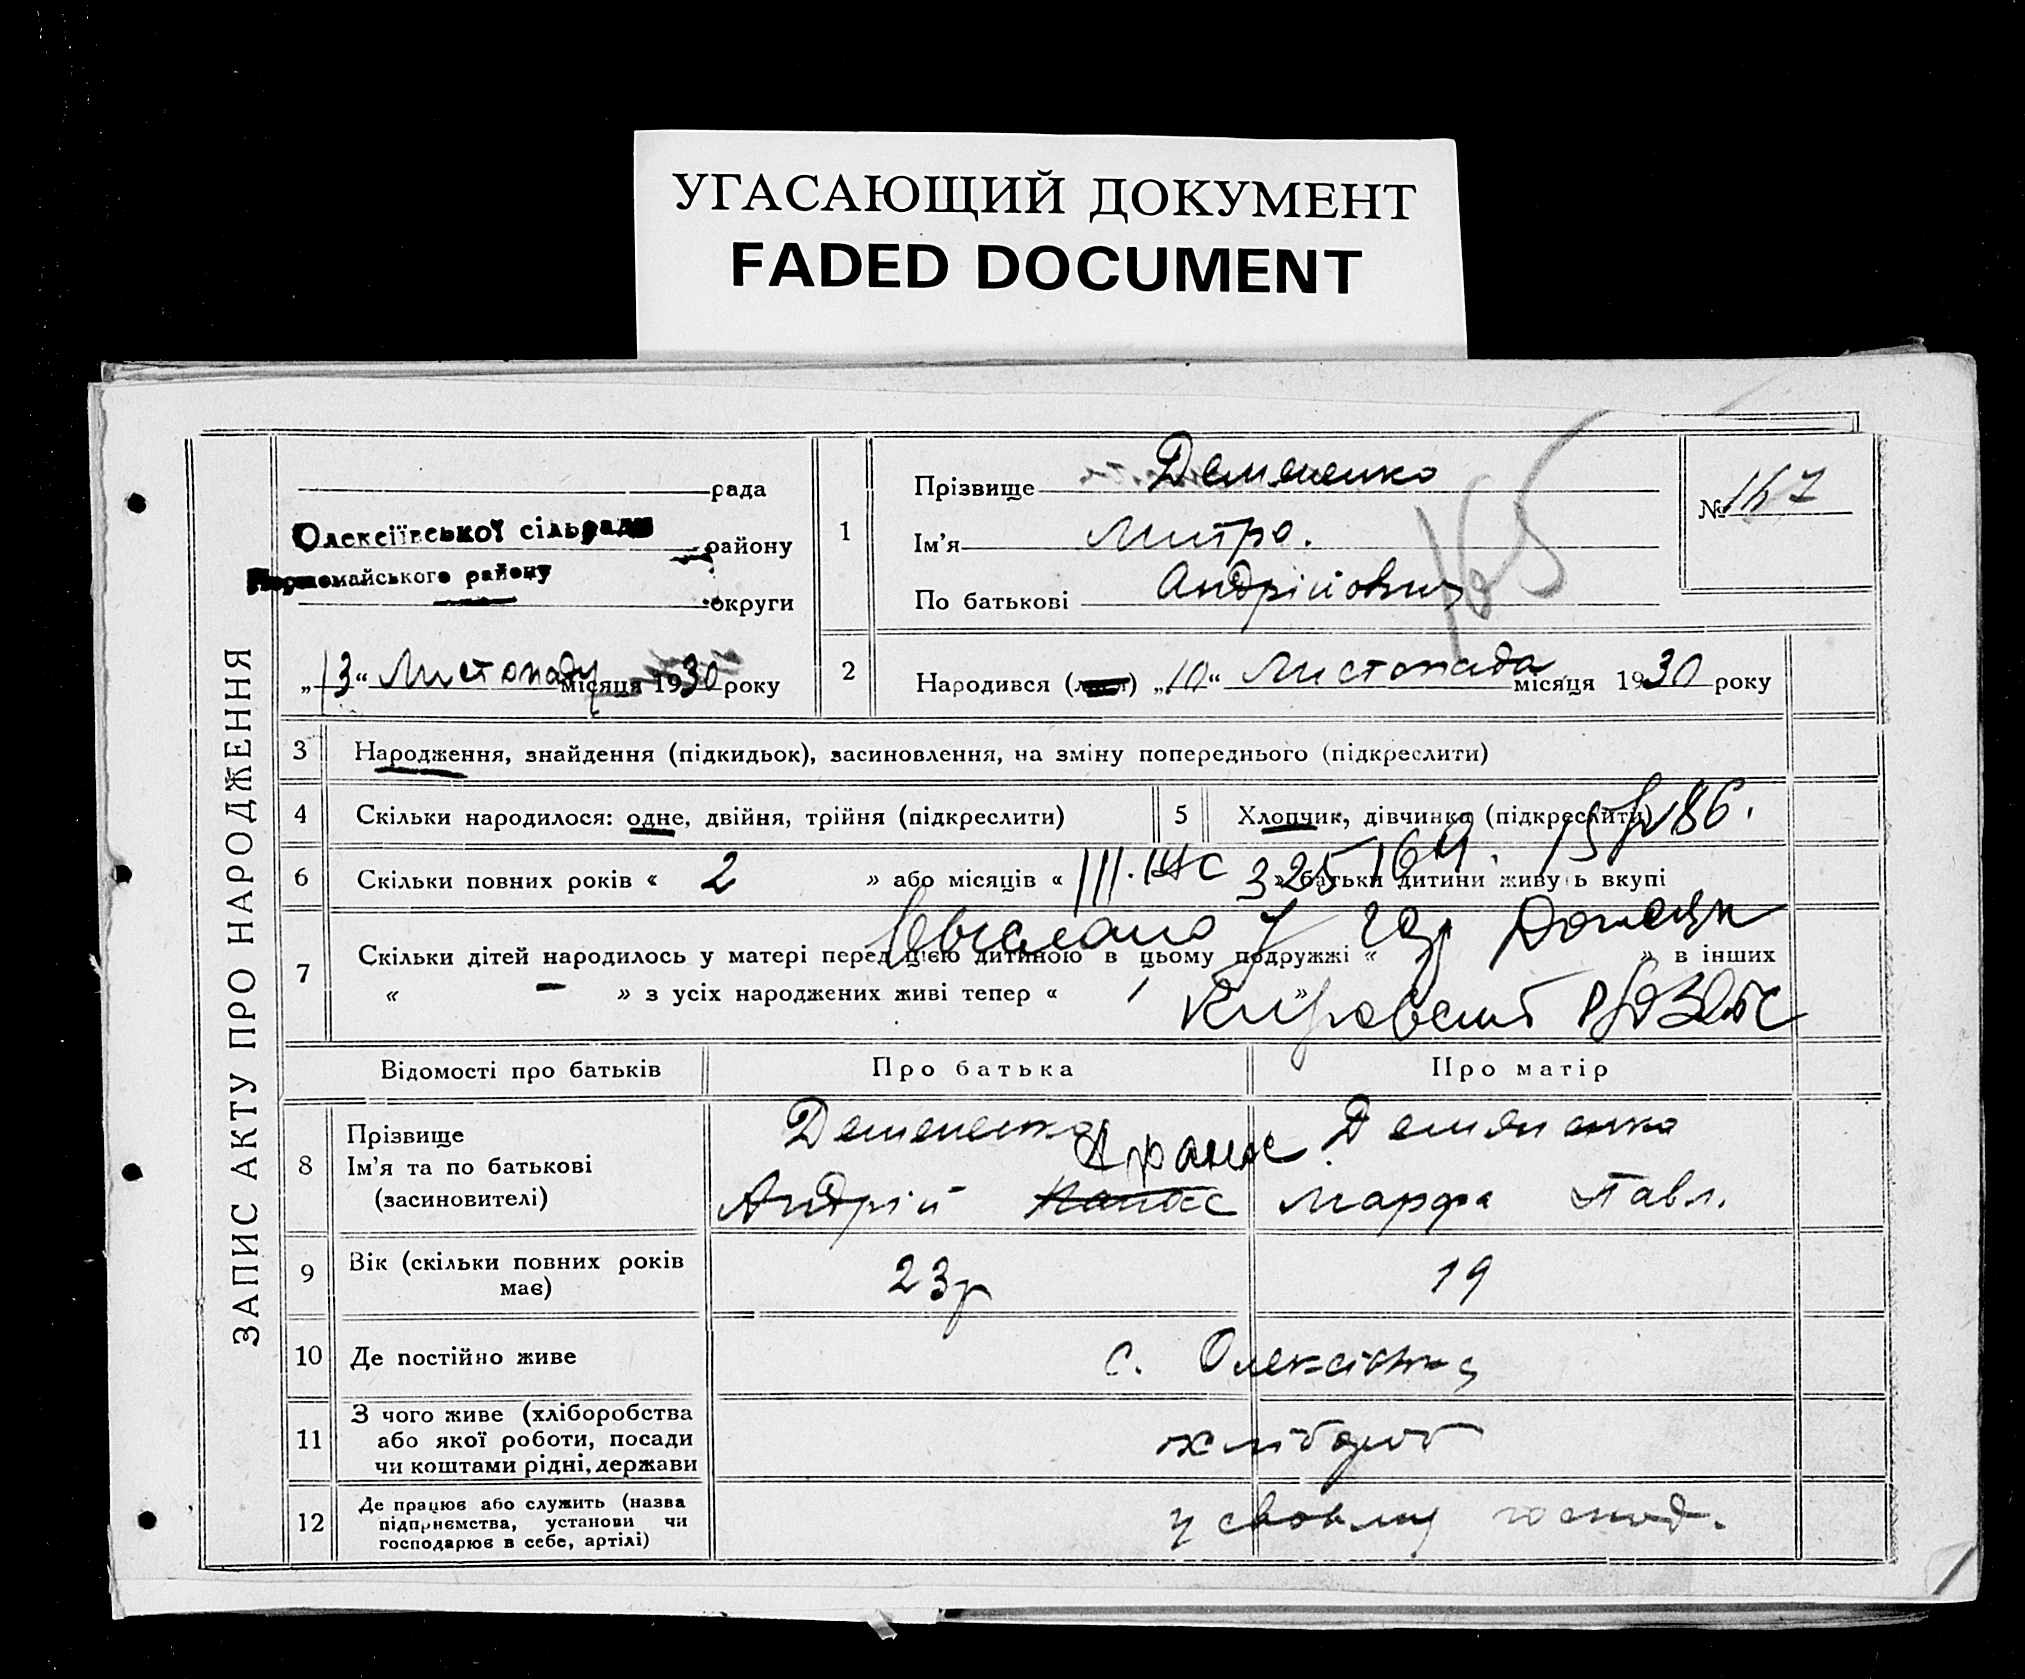 УГАСАЮЩИЙ ДОКУМЕНТ
FADED DOCUMENT
ЗАПИС АКТУ ПРО НАРОДЖЕННЯ
рада
Олексіївської сільради
району
району
округи
„13“ Листопаду місяця 1930 року
1
Прізвище Демяненко
Ім'я Митро.
По батькові Андрійович
165
№ 167
2
Народився „10“ Листопада місяця 1930 року
3 Народження, знайдення (підкидьок), засиновлення, на зміну попереднього (підкреслити)
4 Скільки народилося: одне, двійня, трійня (підкреслити)
5 Хлопчик, дівчинка (підкреслити)
86.
6 Скільки повних років « 2 » або місяців « » батьки дитини живуть вкупі
III. 325164.
7 Скільки дітей народилось у матері перед цією дитиною в цьому подружжі « » в інших
« – » з усіх народжених живі тепер « 1 »
Відомості про батьків
Про батька
Про матір
8 Прізвище
Ім'я та по батькові
(засиновителі)
Демяненко
Андрій
Демяненко
Марфа Павл.
9 Вік (скільки повних років має)
23р
19
10 Де постійно живе
с. Олексіївка
11 З чого живе (хліборобства
або якої роботи, посади
чи коштами рідні, держави
хлібороб
12 Де працює або служить (назва
підприємства, установи чи
господарює в себе, артілі)
у своєму господ.